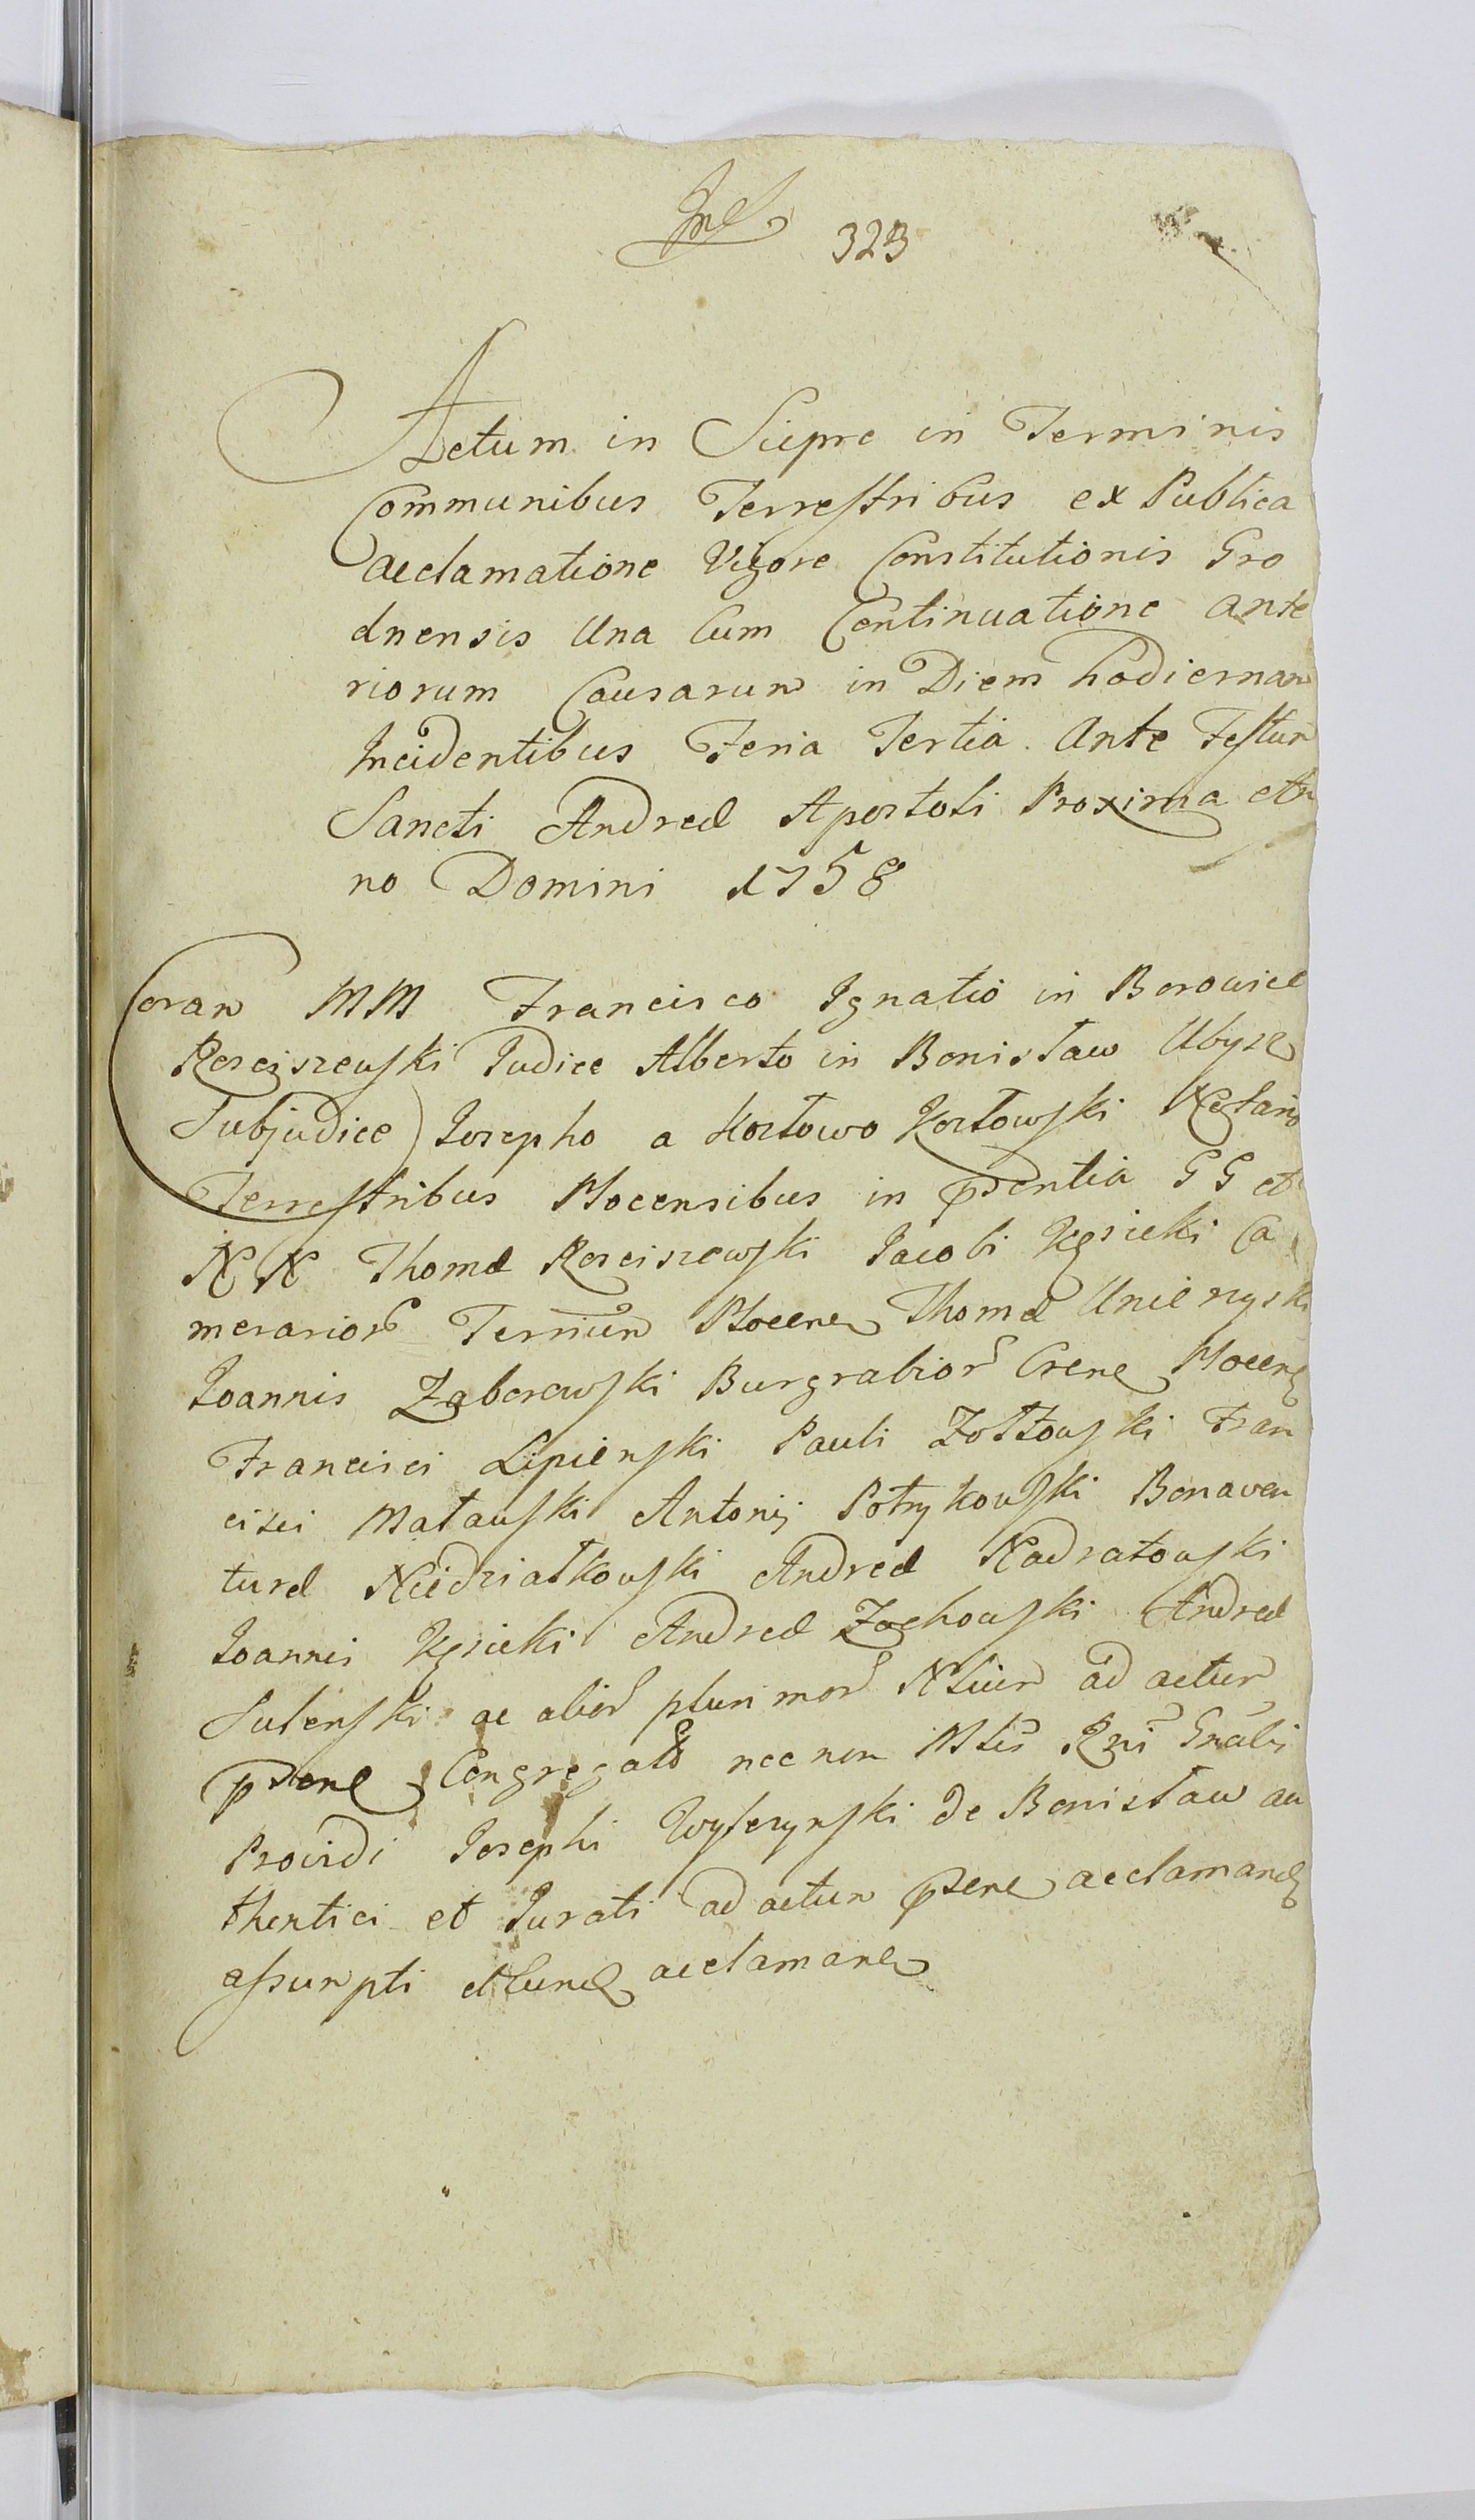 323
Actum in Siepre in Terminis
Communibus Terrestribus ex Publica
acclamatione Vigore Constitutionis Gro
dnensis Una Cum Continuatione ante
riorum Causarum in Diem hodiernam
Incidentibus Feria Tertia Ante Festum
Sancti Andreæ Apostoli Proxima An
no Domini 1758
Coram MM Francisco Ignatio in Borowice
Rosciszewski Judice Alberto in Bonisław Ubysz
Subjudice Josepho a Kosłowo Kosłowski Notario
Terrestribus Plocensibus in pntia GG et
NN Thomæ Rosciszewski Jacobi Kęsicki Ca
merarior Terrium Plocen Thomæ Unierzyski
Joannis Zaborowski Burgrabior Cren Plocen
Francisci Lipienski Pauli Zołtowski Fran
cisci Matawski Antonij Potrykowski Bonaven
turæ Niedziałkowski Andreæ Nadratowski
Joannis Kęsicki Andreæ Zochowski Andreæ
Sulenski ac alior plurimor Nlium ad actum
pnten Congregator nec non Mtis Rgni Gnalis
Providi Josephi Wyferynski de Bonisław au
thentici et Jurati ad actum pnten acclamand
assumpti acclaman